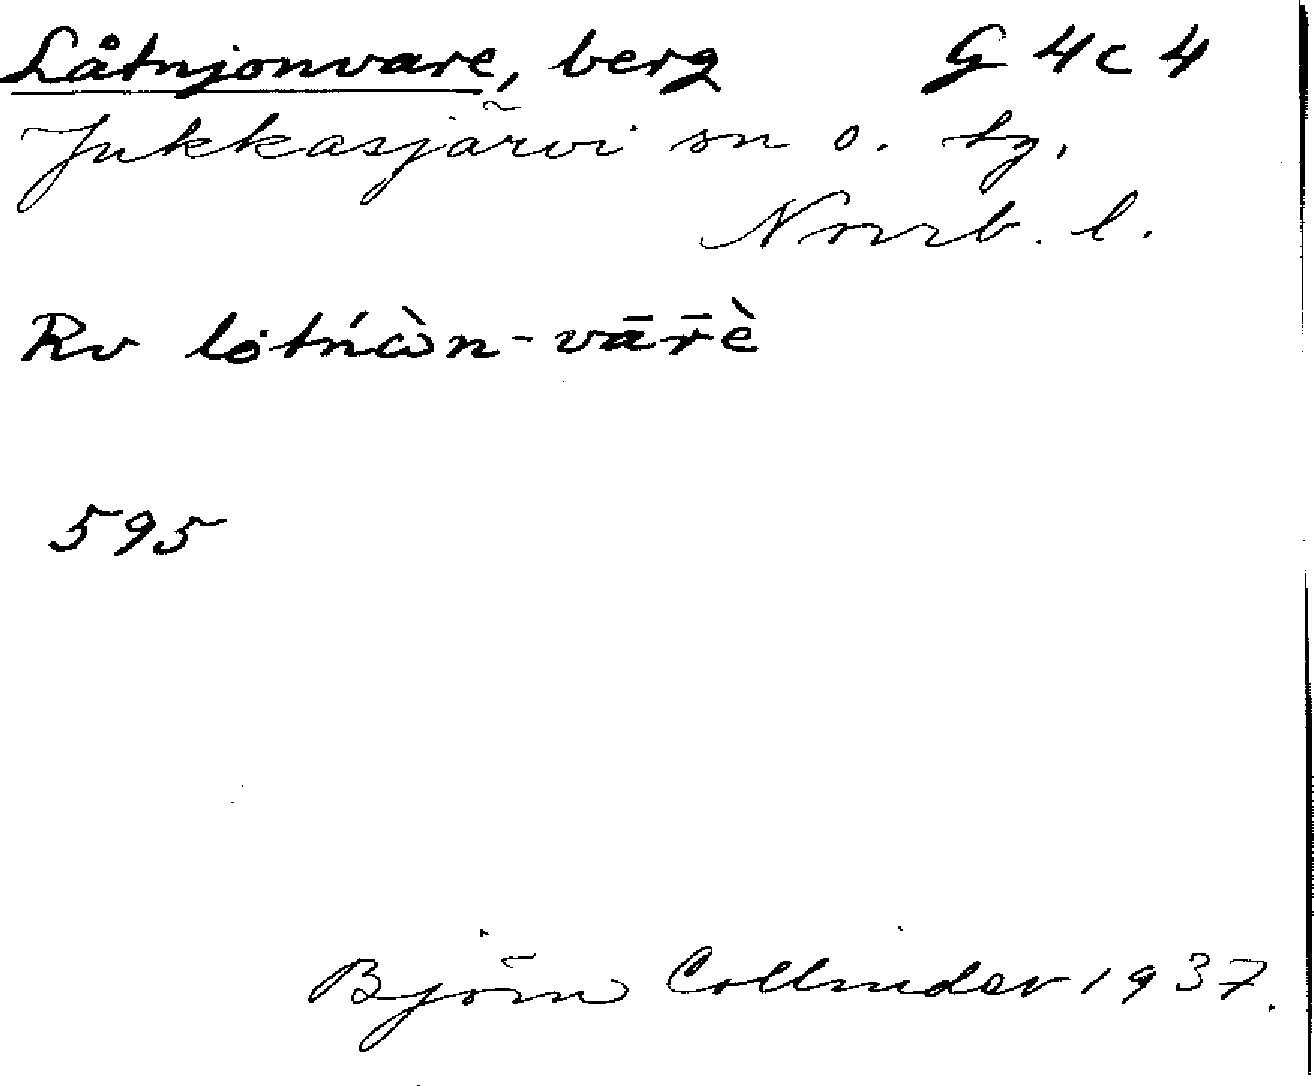 Låtnjonvare, berg G 4c4
Jukkasjärvi sn o. tg.
Norrb. l.
Rv lo̤tńὼn-vār̄è
595
Björn Collinder 1937.